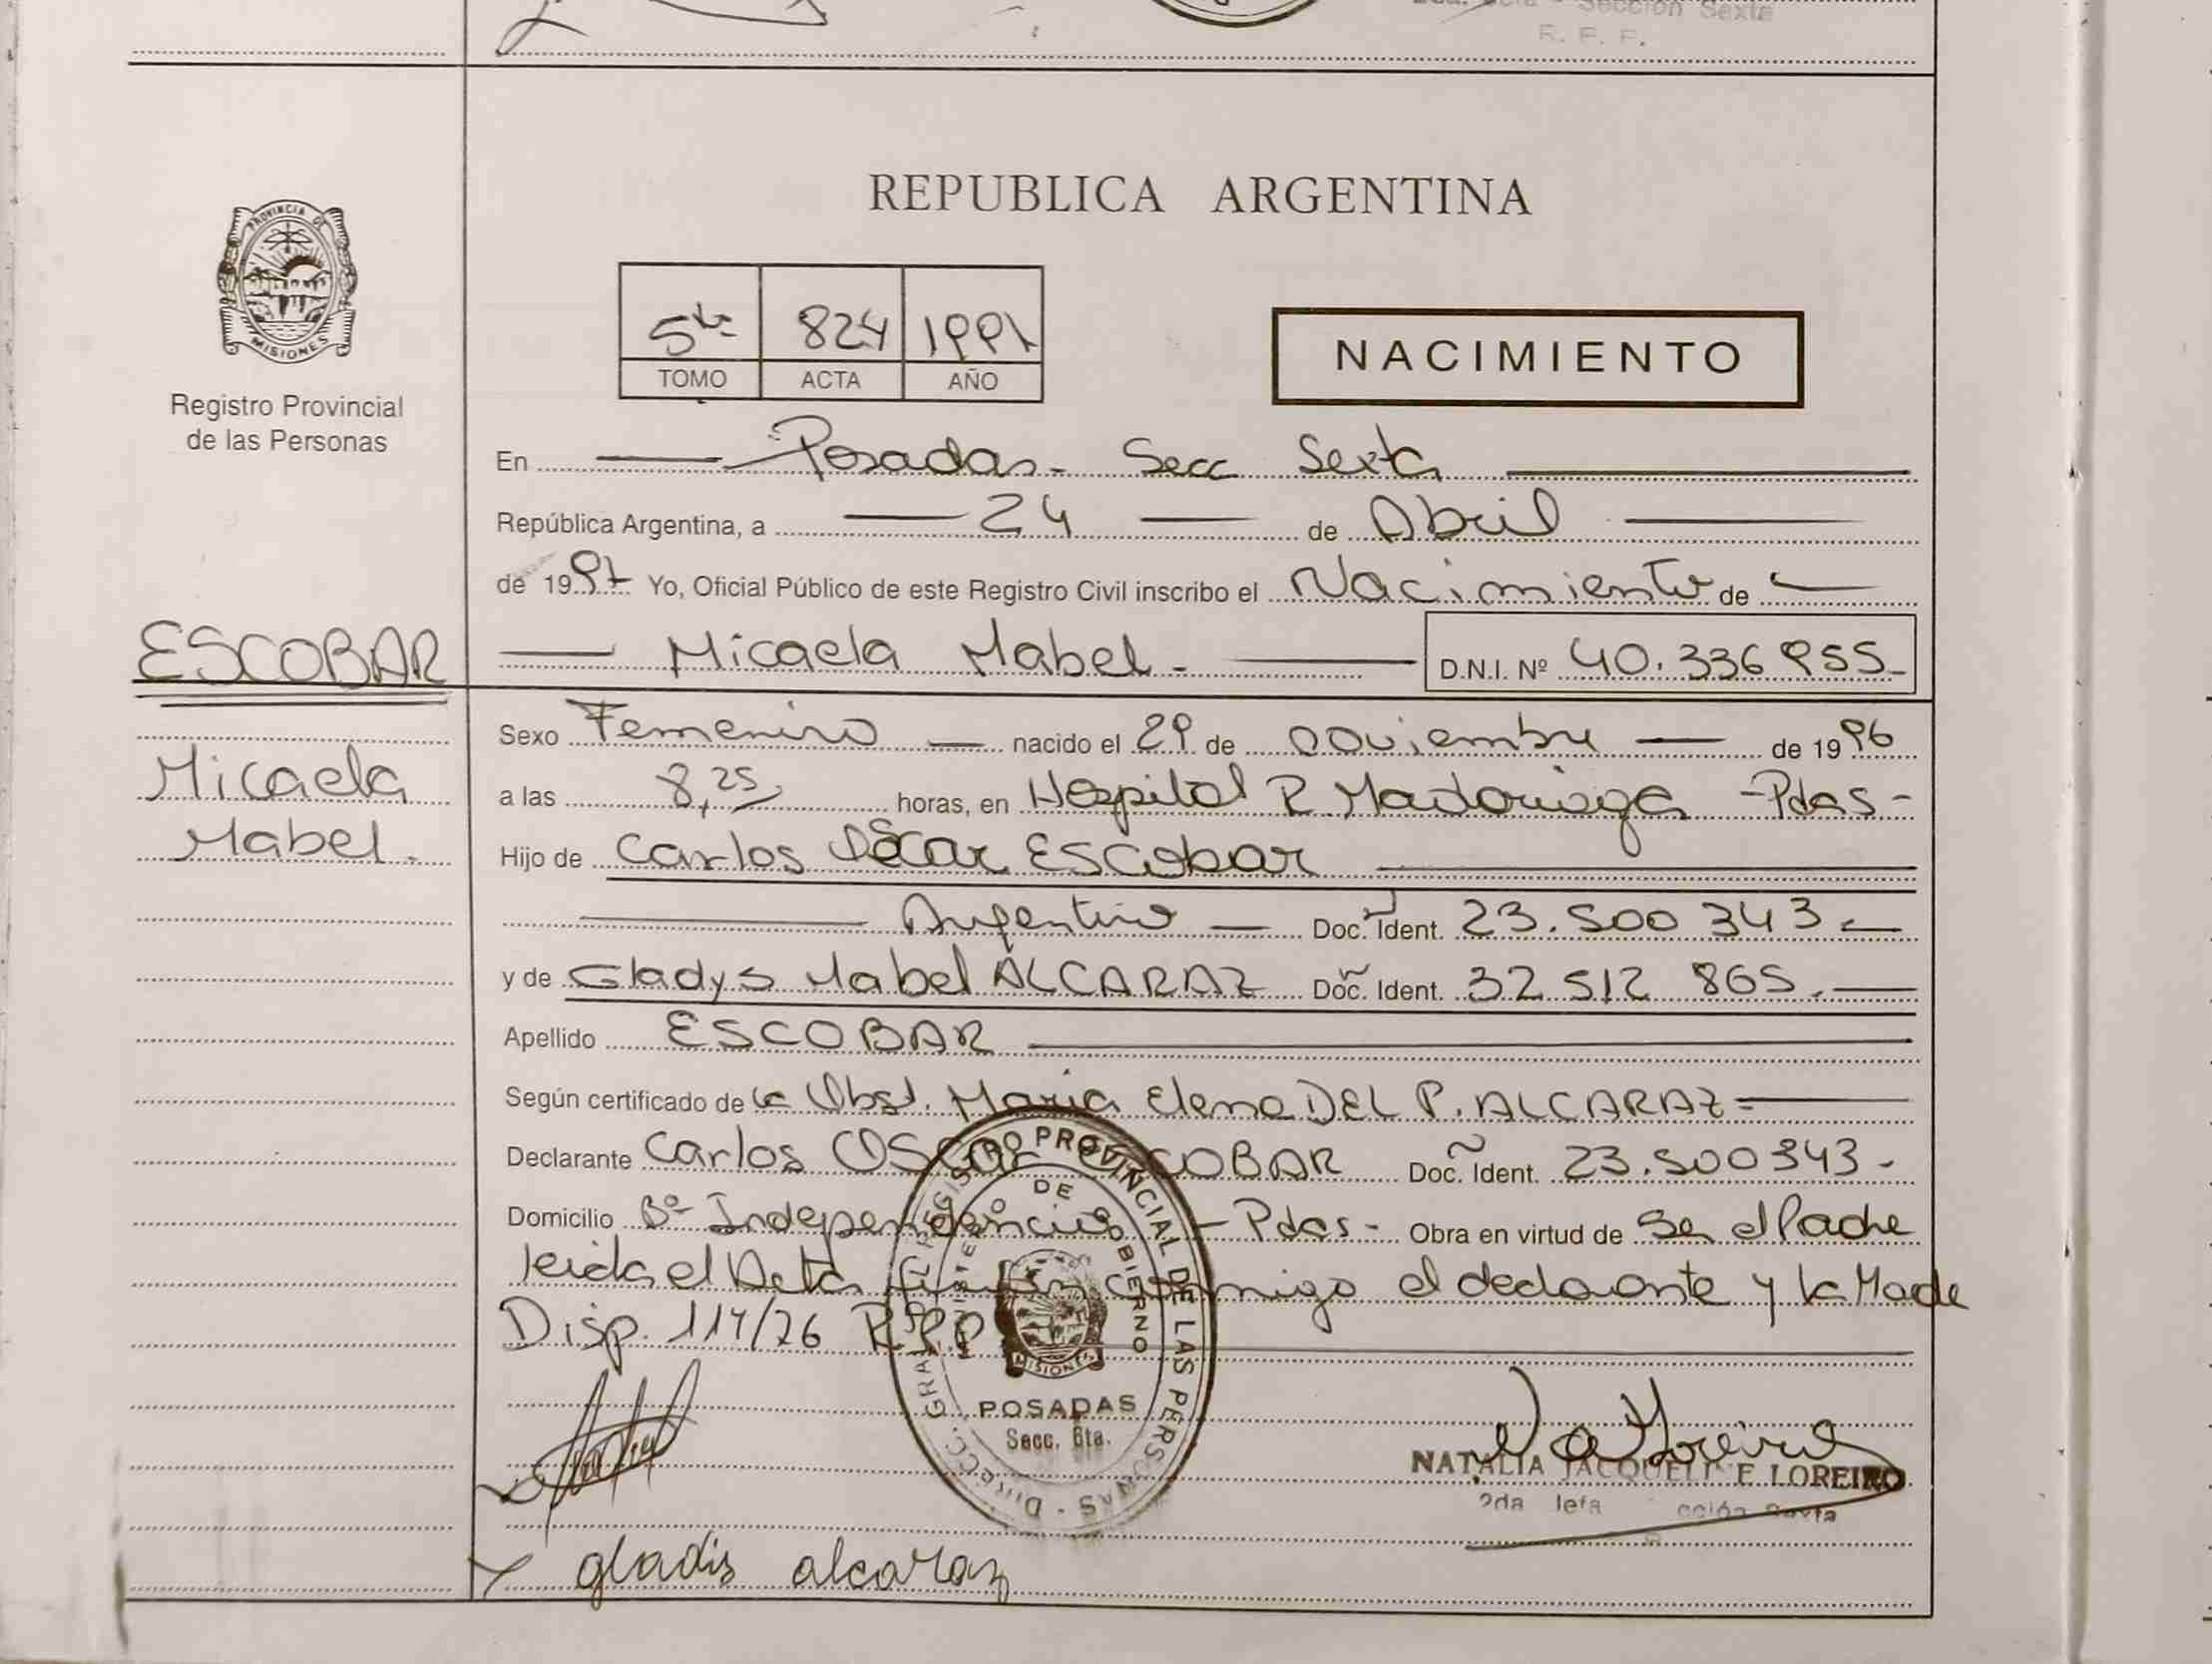 Sección Sexta
R. F. F.
PROVINCIA DE
MISIONES
Registro Provincial
de las Personas
REPUBLICA ARGENTINA
5to 824 1997
TOMO ACTA AÑO
NACIMIENTO
En Posadas - Secc Sexta
República Argentina, a 24 de Abril
de 1997 Yo, Oficial Público de este Registro Civil inscribo el Nacimiento de
ESCOBAR
Micaela Mabel - D.N.I. Nº 40.336 955
Micaela
Mabel.
Sexo Femenino nacido el 29 de noviembre de 1996
a las 8,25 horas, en Hospital R. Madariaga - Pdas -
Hijo de Carlos Oscar Escobar
Argentino Doc. Ident. 23.500 343
y de Gladys Mabel ALCARAZ Doc. Ident. 32 512 865.
Apellido ESCOBAR
Según certificado de la Obst. Maria Elena DEL P. ALCARAZ
Declarante Carlos OSCAR ESCOBAR Doc. Ident. 23.500343 -
Domicilio Bº Independencia - Pdas - Obra en virtud de Ser el Padre
leida el Acta firman conmigo el declarante y la Madre
Disp. 114/76 R.P.P
DIRECC. GRAL. REGISTRO PROVINCIAL DE LAS PERSONAS
MINISTERIO DE GOBIERNO
MISIONES
POSADAS
Secc. 6ta.
NATALIA JACQUELINE LOREIRO
2da Jefa Sección Sexta
gladis alcaraz